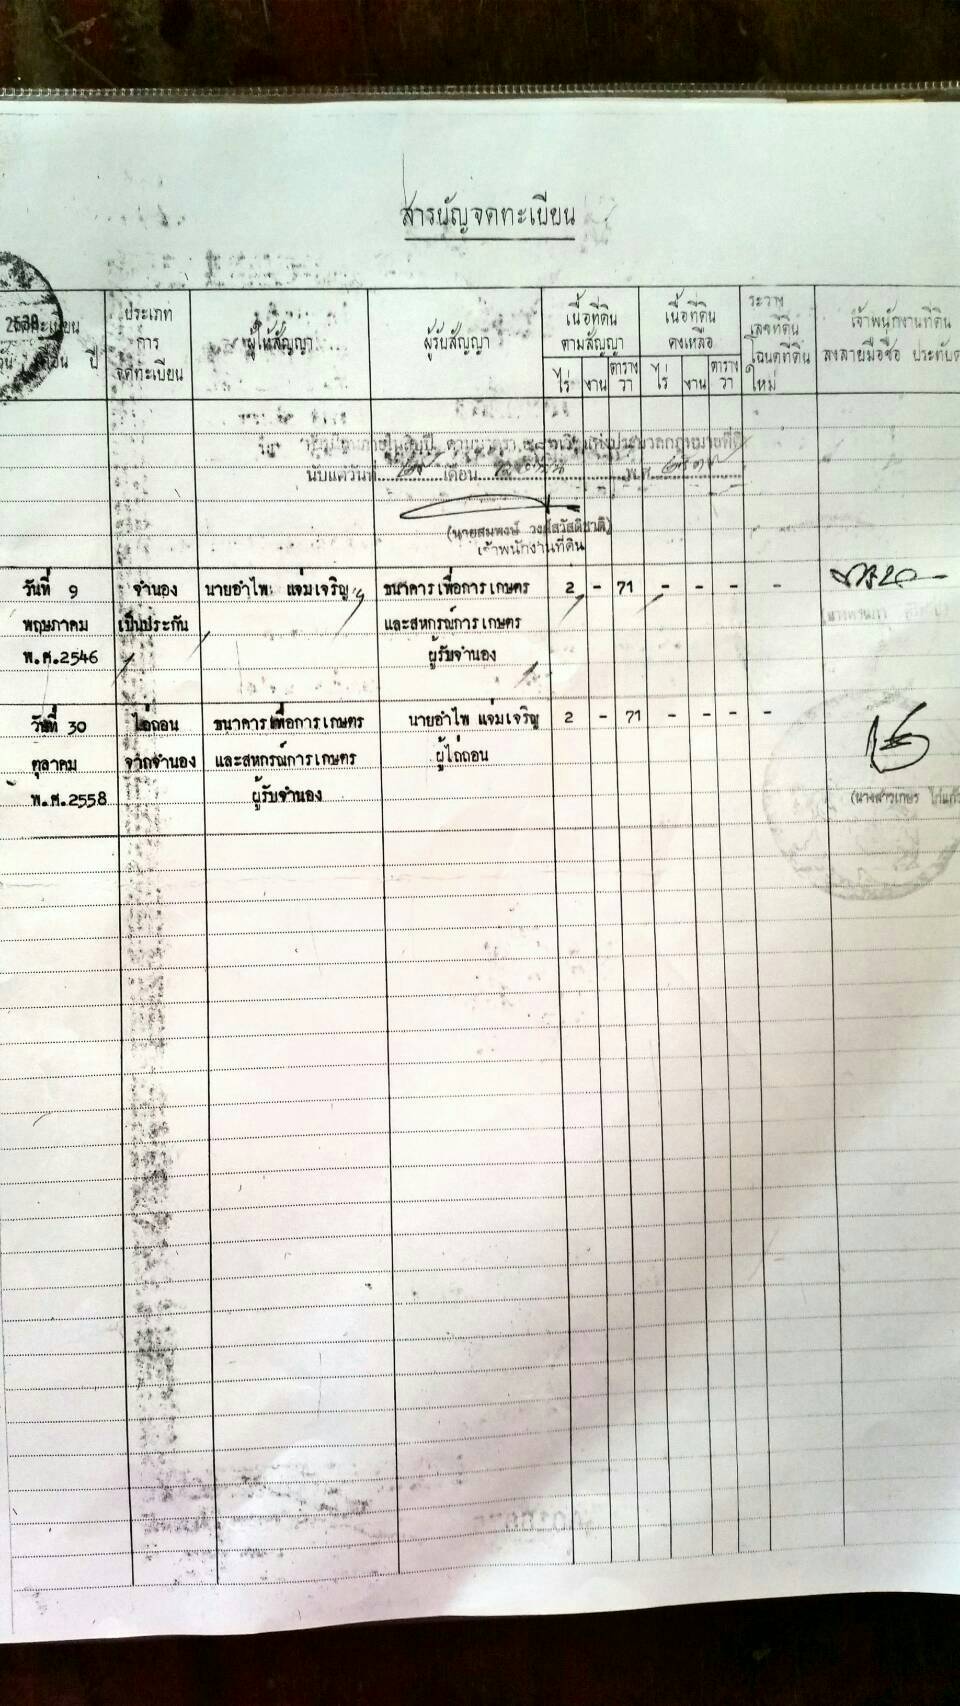 สารบัญจดทะเบียน
จดทะเบียน
วัน เดือน ปี
ประเภท
การ
จดทะเบียน
ผู้ให้สัญญา
ผู้รับสัญญา
เนื้อที่ดิน
ตามสัญญา
ไร่ งาน ตาราง
วา
เนื้อที่ดิน
คงเหลือ
ไร่ งาน ตาราง
วา
ระวาง
เลขที่ดิน
โฉนดที่ดิน
ใหม่
เจ้าพนักงานที่ดิน
ลงลายมือชื่อ ประทับ
ตามมาตรา แห่งประมวลกฎหมายที่ดิน
นับแต่วันที่ เดือน พ.ศ.
(นายสมพงษ์ วงศ์สวัสดิชาติ)
เจ้าพนักงานที่ดิน
วันที่ 9 จำนอง นายอำไพ แจ่มเจริญ ธนาคารเพื่อการเกษตร 2 - 71 - - - -
พฤษภาคม เป็นประกัน และสหกรณ์การเกษตร
พ.ศ.2546 ผู้รับจำนอง
วันที่ 30 ไถ่ถอน ธนาคารเพื่อการเกษตร นายอำไพ แจ่มเจริญ 2 - 71 - - - -
ตุลาคม จากจำนอง และสหกรณ์การเกษตร ผู้ไถ่ถอน
พ.ศ.2558 ผู้รับจำนอง
(นางสาวเกษร ไก่แก้ว